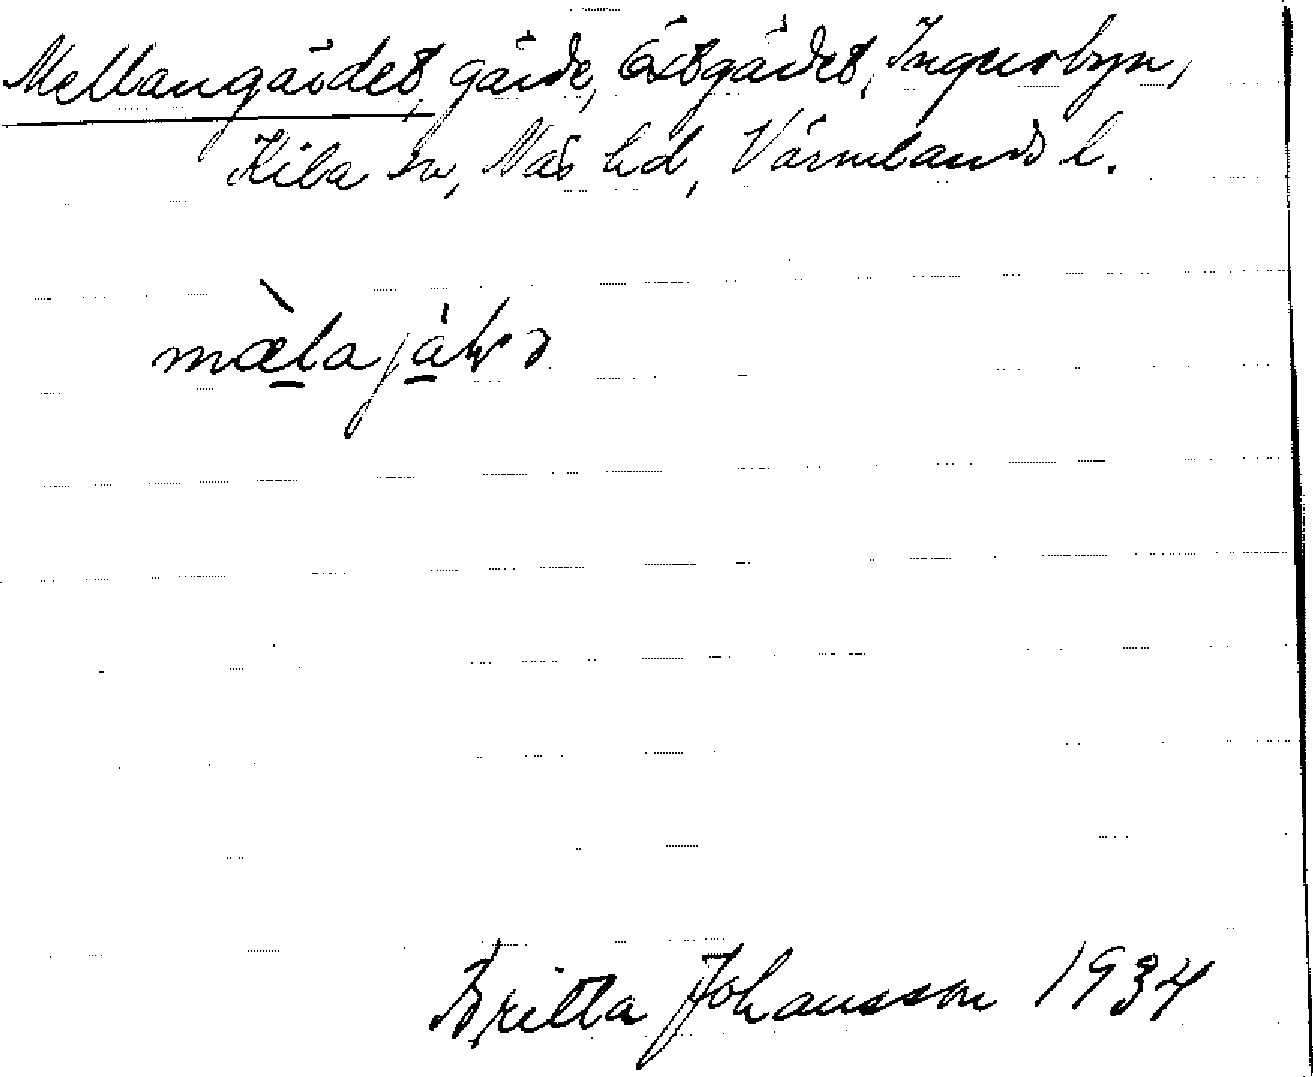 Mellangärdet, gärde, Östgärdet, Ingersbyn,
Kila sn, Näs hd, Värmlands l.
Britta Johansson 1934